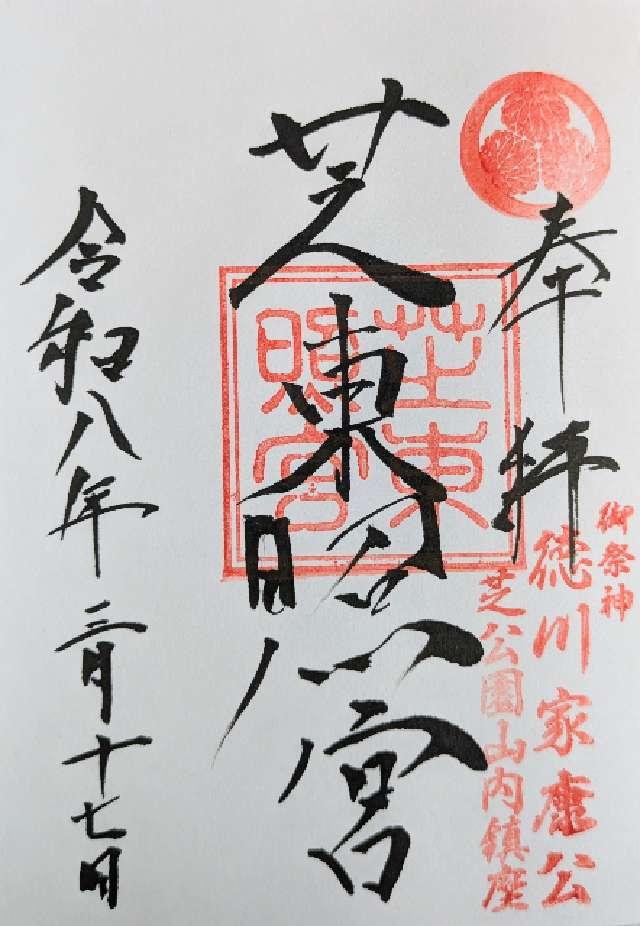 奉拝
御祭神
徳川家康公
芝公園山内鎮座
芝東照宮
芝東照宮
令和八年三月十七日